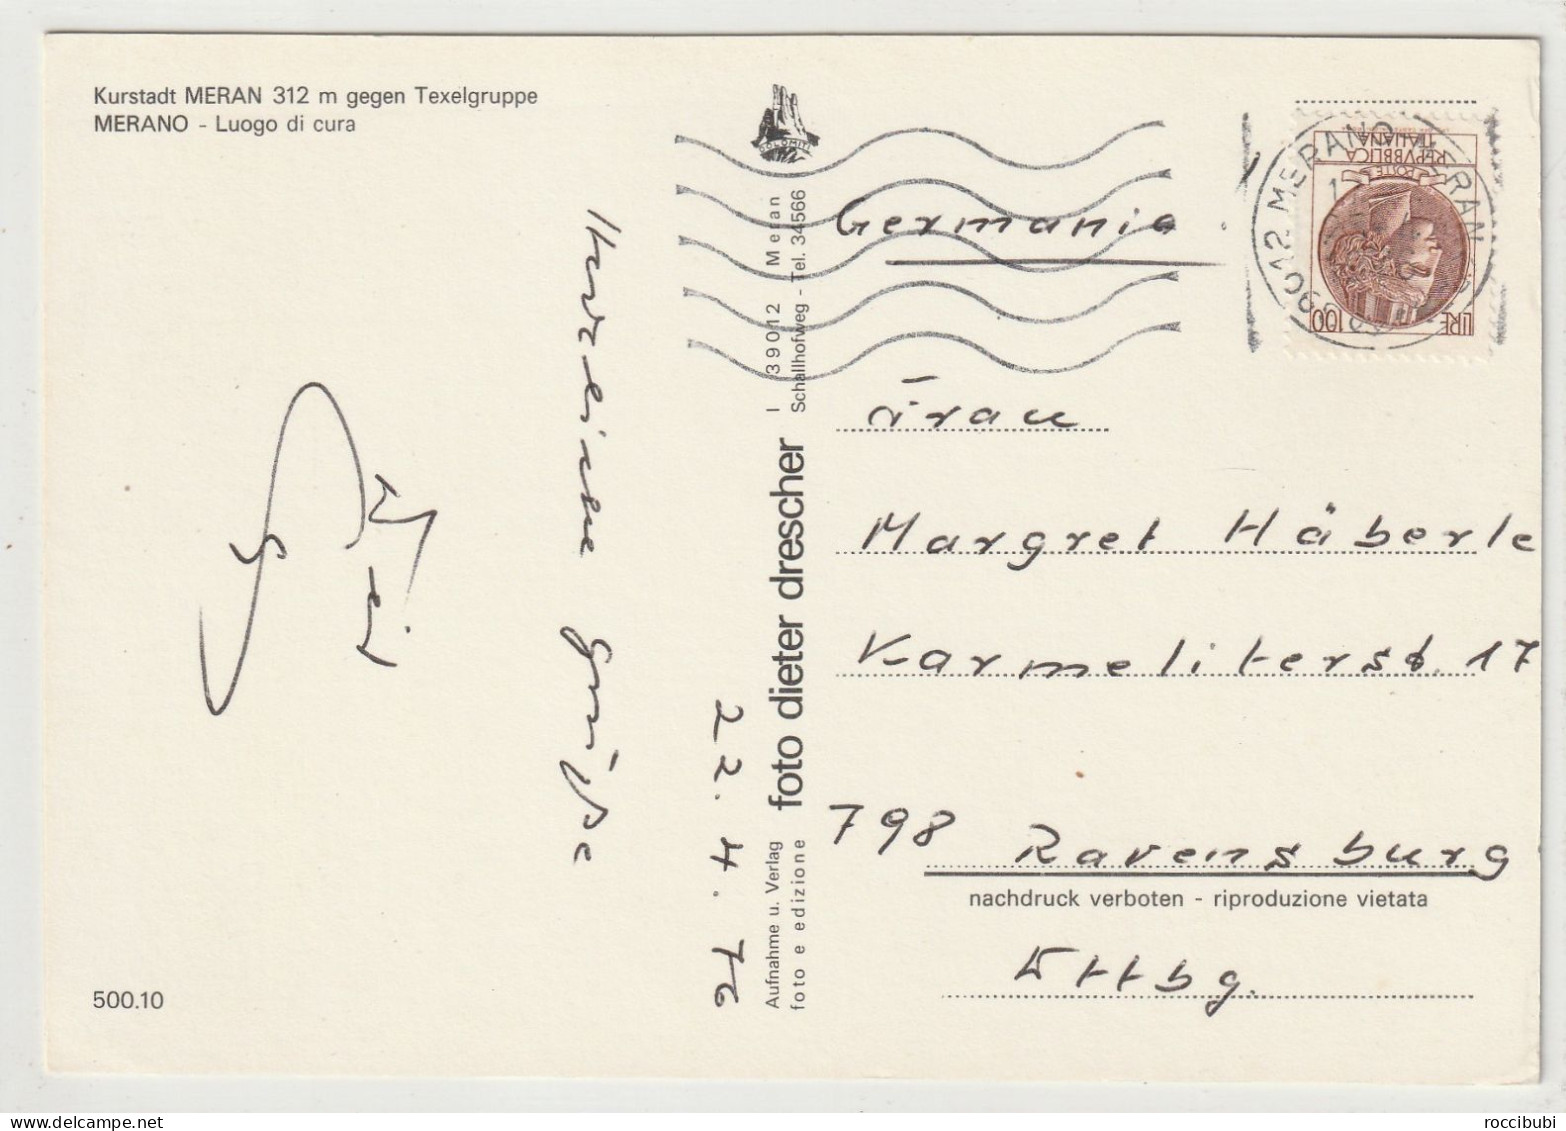 Kurstadt MERAN 312 m gegen Texelgruppe
MERANO - Luogo di cura
Herzliche Grüße
22. 4. 76
500.10
DOLOMITI
Aufnahme u. Verlag
foto e edizione
foto dieter drescher
I 39012 Meran
Schallhofweg - Tel. 34566
REPVBBLICA
ITALIANA
POSTE
LIRE 100
39012 MERANO MERAN
Germania
Frau
Margret Häberle
Karmeliterst. 17
798 Ravensburg
nachdruck verboten - riproduzione vietata
Wttbg.
roccibubi